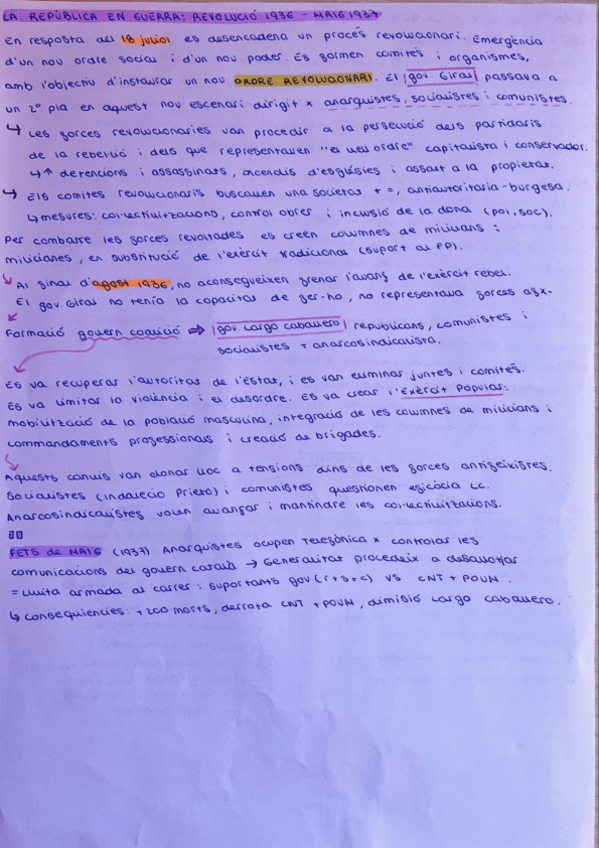 LA REPÚBLICA EN GUERRA: REVOLUCIÓ 1936 - MAIG 1937
En resposta del 18 juliol es desencadena un procés revolucionari. Emergència
d'un nou ordre social i d'un nou poder. Es formen comitès i organismes,
amb l'objectiu d'instaurar un nou ORDRE REVOLUCIONARI. El gov. Giral passava a
un 2º pla en aquest nou escenari dirigit x anarquistes, socialistes i comunistes.
↳ Les forces revolucionaries van procedir a la persecució dels partidaris
de la rebel·lió i dels que representaven "el vell ordre" capitalista i conservador.
↳↑ detencions i assassinats, incendis d'esglésies i assalt a la propietat.
↳ Els comites revolucionaris buscaven una societat + =, antiautoritaria-burgesa.
↳ mesures: col·lectivitzacions, control obrer i inclusió de la dona (pol, soc).
Per combatre les forces revoltades es creen columnes de milicians i
milicianes, en substitució de l'exèrcit tradicional (suport al FP).
↳ Al final d'agost 1936, no aconsegueixen frenar l'avanç de l'exèrcit rebel.
El gov. Giral no tenía la capacitat de fer-ho, no representava forces afx.
Formació govern coalició ⇒ gov. Largo Caballero republicans, comunistes i
socialistes + anarcosindicalista.
Es va recuperar l'autoritat de l'Estat, i es van eliminar juntes i comitès.
Es va limitar la violència i el desordre. Es va crear l'Exèrcit Popular:
mobilització de la població masculina, integració de les columnes de milicians i
commandaments professionals i creació de brigades.
Aquests canvis van donar lloc a tensions dins de les forces antifeixistes.
Socialistes (Indalecio Prieto) i comunistes questionen eficàcia LC.
Anarcosindicalistes volen avançar i mantindre les col·lectivitzacions.
FETS de MAIG (1937) Anarquistes ocupen Telefònica x controlar les
comunicacions del govern català → Generalitat procedeix a desallotjar
= lluita armada al carrer: suportants gov (r+s+c) VS CNT + POUM.
↳ consequiencies: +200 morts, derrota CNT + POUM, dimisió Largo Caballero.